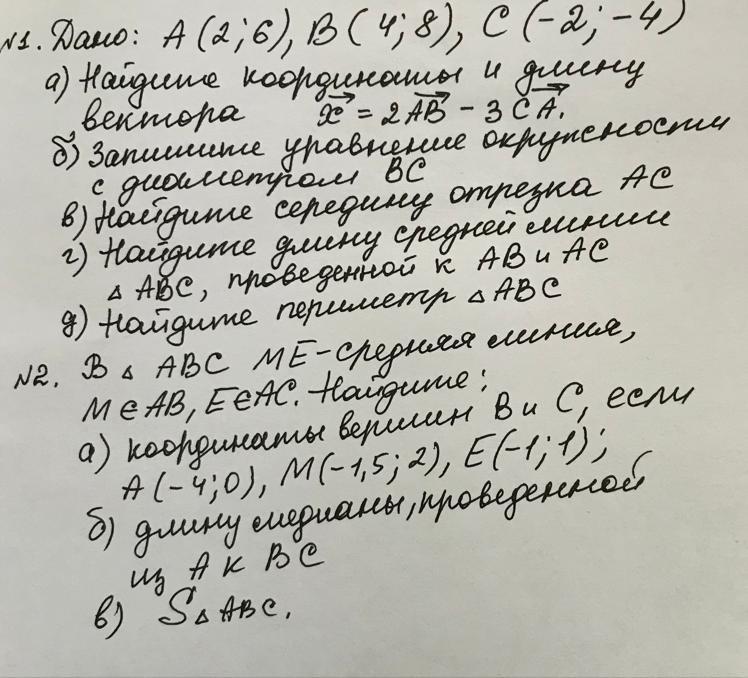 №1. Дано: A(2;6), B(4;8), C(-2;-4)
а) Найдите координаты и длину
вектора x⃗ = 2AB⃗ - 3CA⃗.
б) Запишите уравнение окружности
с диаметром BC
в) Найдите середину отрезка AC
г) Найдите длину средней линии
△ABC, проведенной к AB и AC
д) Найдите периметр △ABC
№2. В △ ABC ME-средняя линия,
M∈AB, E∈AC. Найдите:
а) координаты вершин B и C, если
A(-4;0), M(-1,5;2), E(-1;1);
б) длину медианы, проведенной
из A к BC
в) S△ABC.